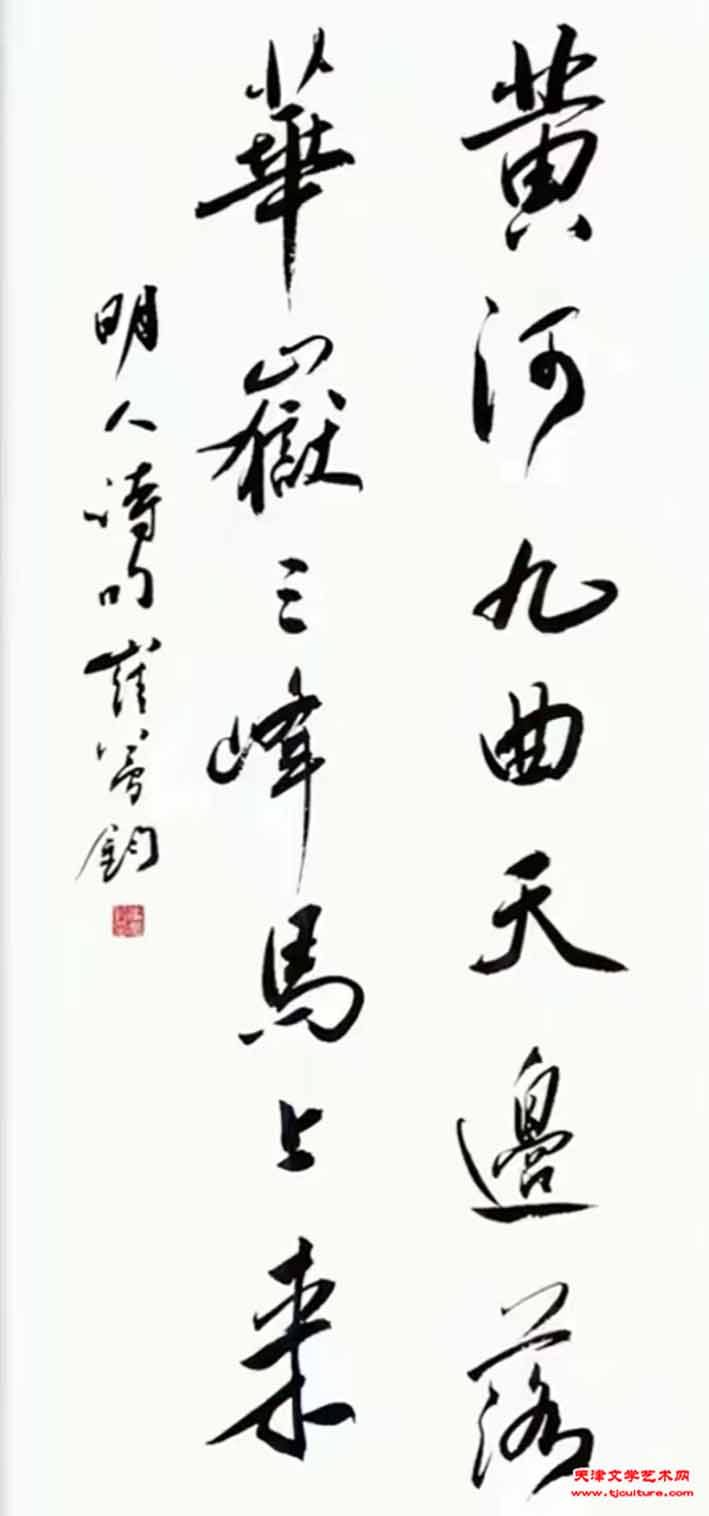 黄河九曲天邊落
華嶽三峰馬上来
明人詩句崔寶鈞
天津文学艺术网
www.tjculture.com